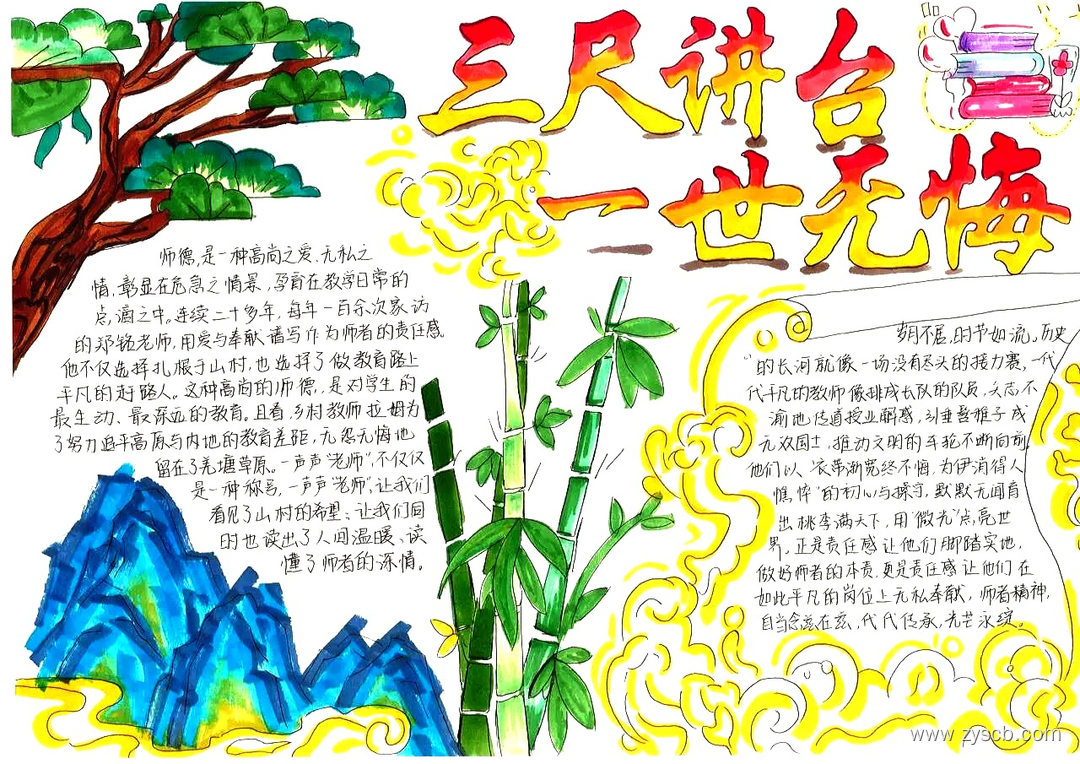 三尺讲台
一世无悔
师德,是一种高尚之爱、无私之
情,彰显在危急之情景,孕育在教学日常的
点滴之中。连续二十多年,每年一百余次家访
的邓铭老师,用爱与奉献谱写作为师者的责任感
他不仅选择扎根于山村,也选择了做教育路上
平凡的赶路人。这种高尚的师德,是对学生的
最生动、最深远的教育。且看,乡村教师拉姆为
了努力追平高原与内地的教育差距,无怨无悔地
留在了羌塘草原。一声声“老师”,不仅仅
是一种称号,一声声“老师”,让我们
看见了山村的希望、让我们同
时也读出了人间温暖、读
懂了师者的深情。
岁月不居,时节如流。历史
的长河就像一场没有尽头的接力赛,一代
代平凡的教师像排成长队的队员,矢志不
渝地传道授业解惑,引垂髫稚子成
无双国士,推动文明的车轮不断向前
他们以“衣带渐宽终不悔,为伊消得人
憔悴”的初心与操守,默默无闻育
出桃李满天下,用“微光”点亮世
界。正是责任感让他们脚踏实地,
做好师者的本责,更是责任感让他们在
如此平凡的岗位上无私奉献,师者精神,
自当念兹在兹,代代传承,光芒永绽。
www.zyscb.com